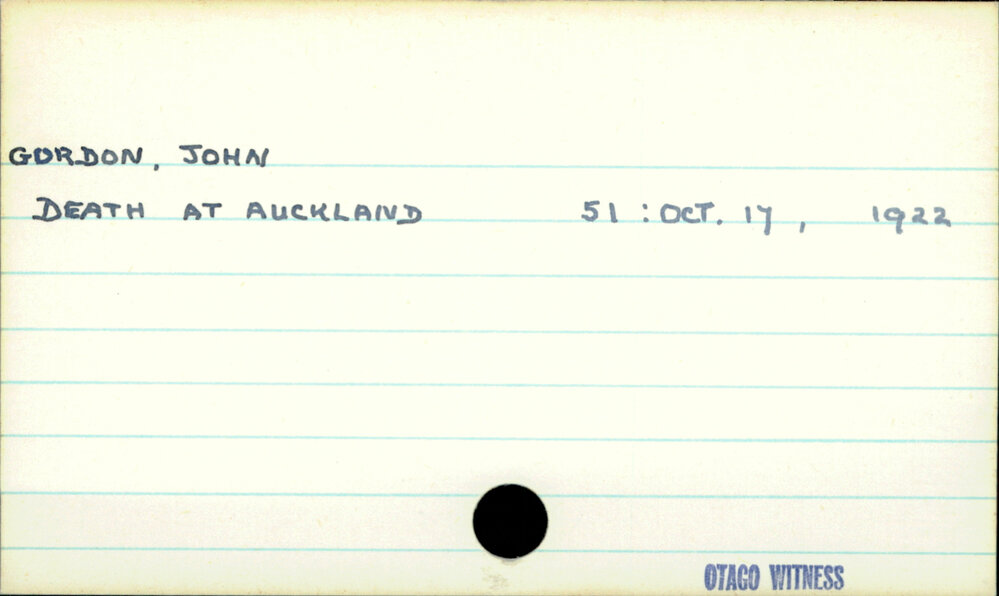 GORDON, JOHN
DEATH AT AUCKLAND 51 : OCT. 17, 1922
OTAGO WITNESS